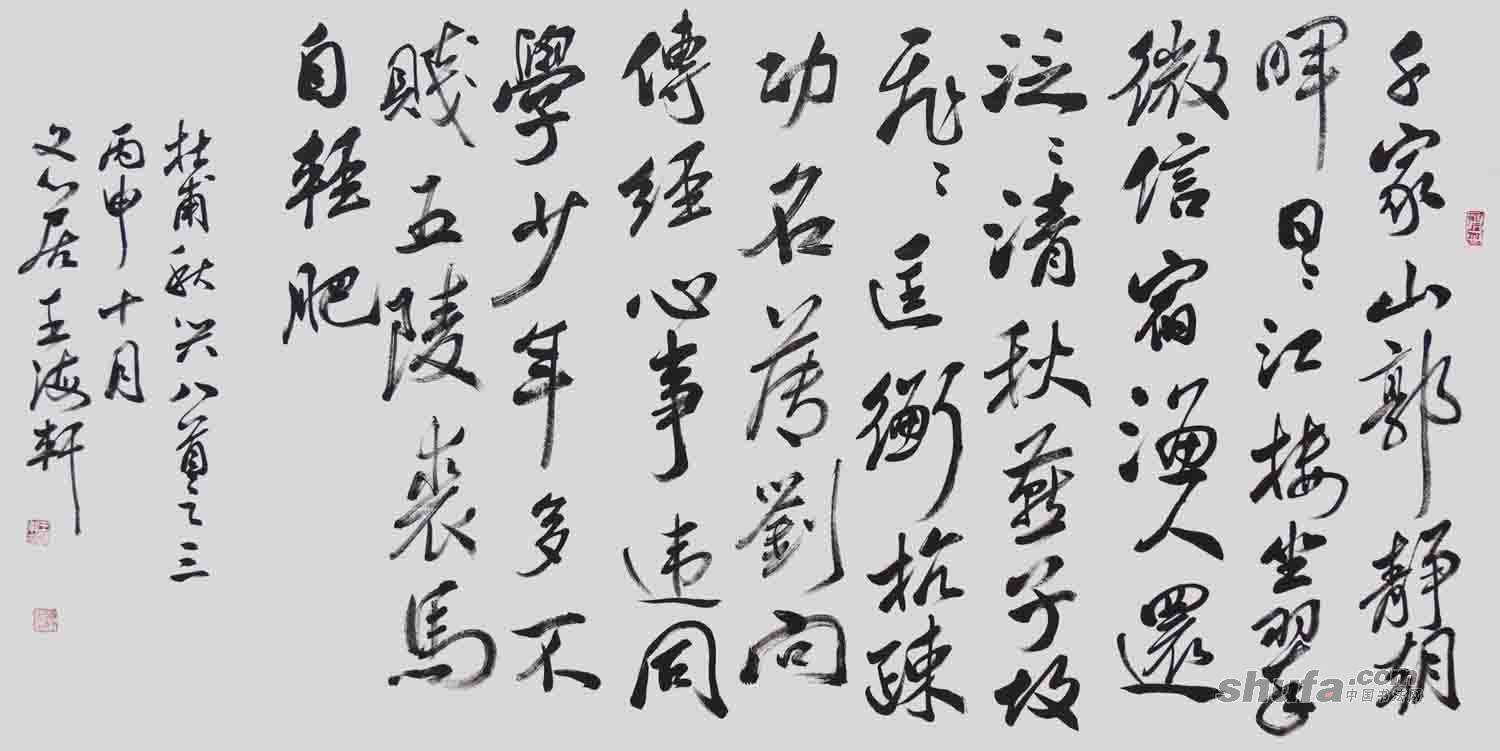 千家山郭靜朝
暉日〻江楼坐翠
微信宿漁人還
泛〻清秋燕子故
飛〻匡衡抗疎
功名薄劉向
傳經心事违同
學少年多不
賤五陵裘馬
自輕肥
杜甫秋兴八首之三
丙申十月
文心居王海軒
shufa.com
中国书法网